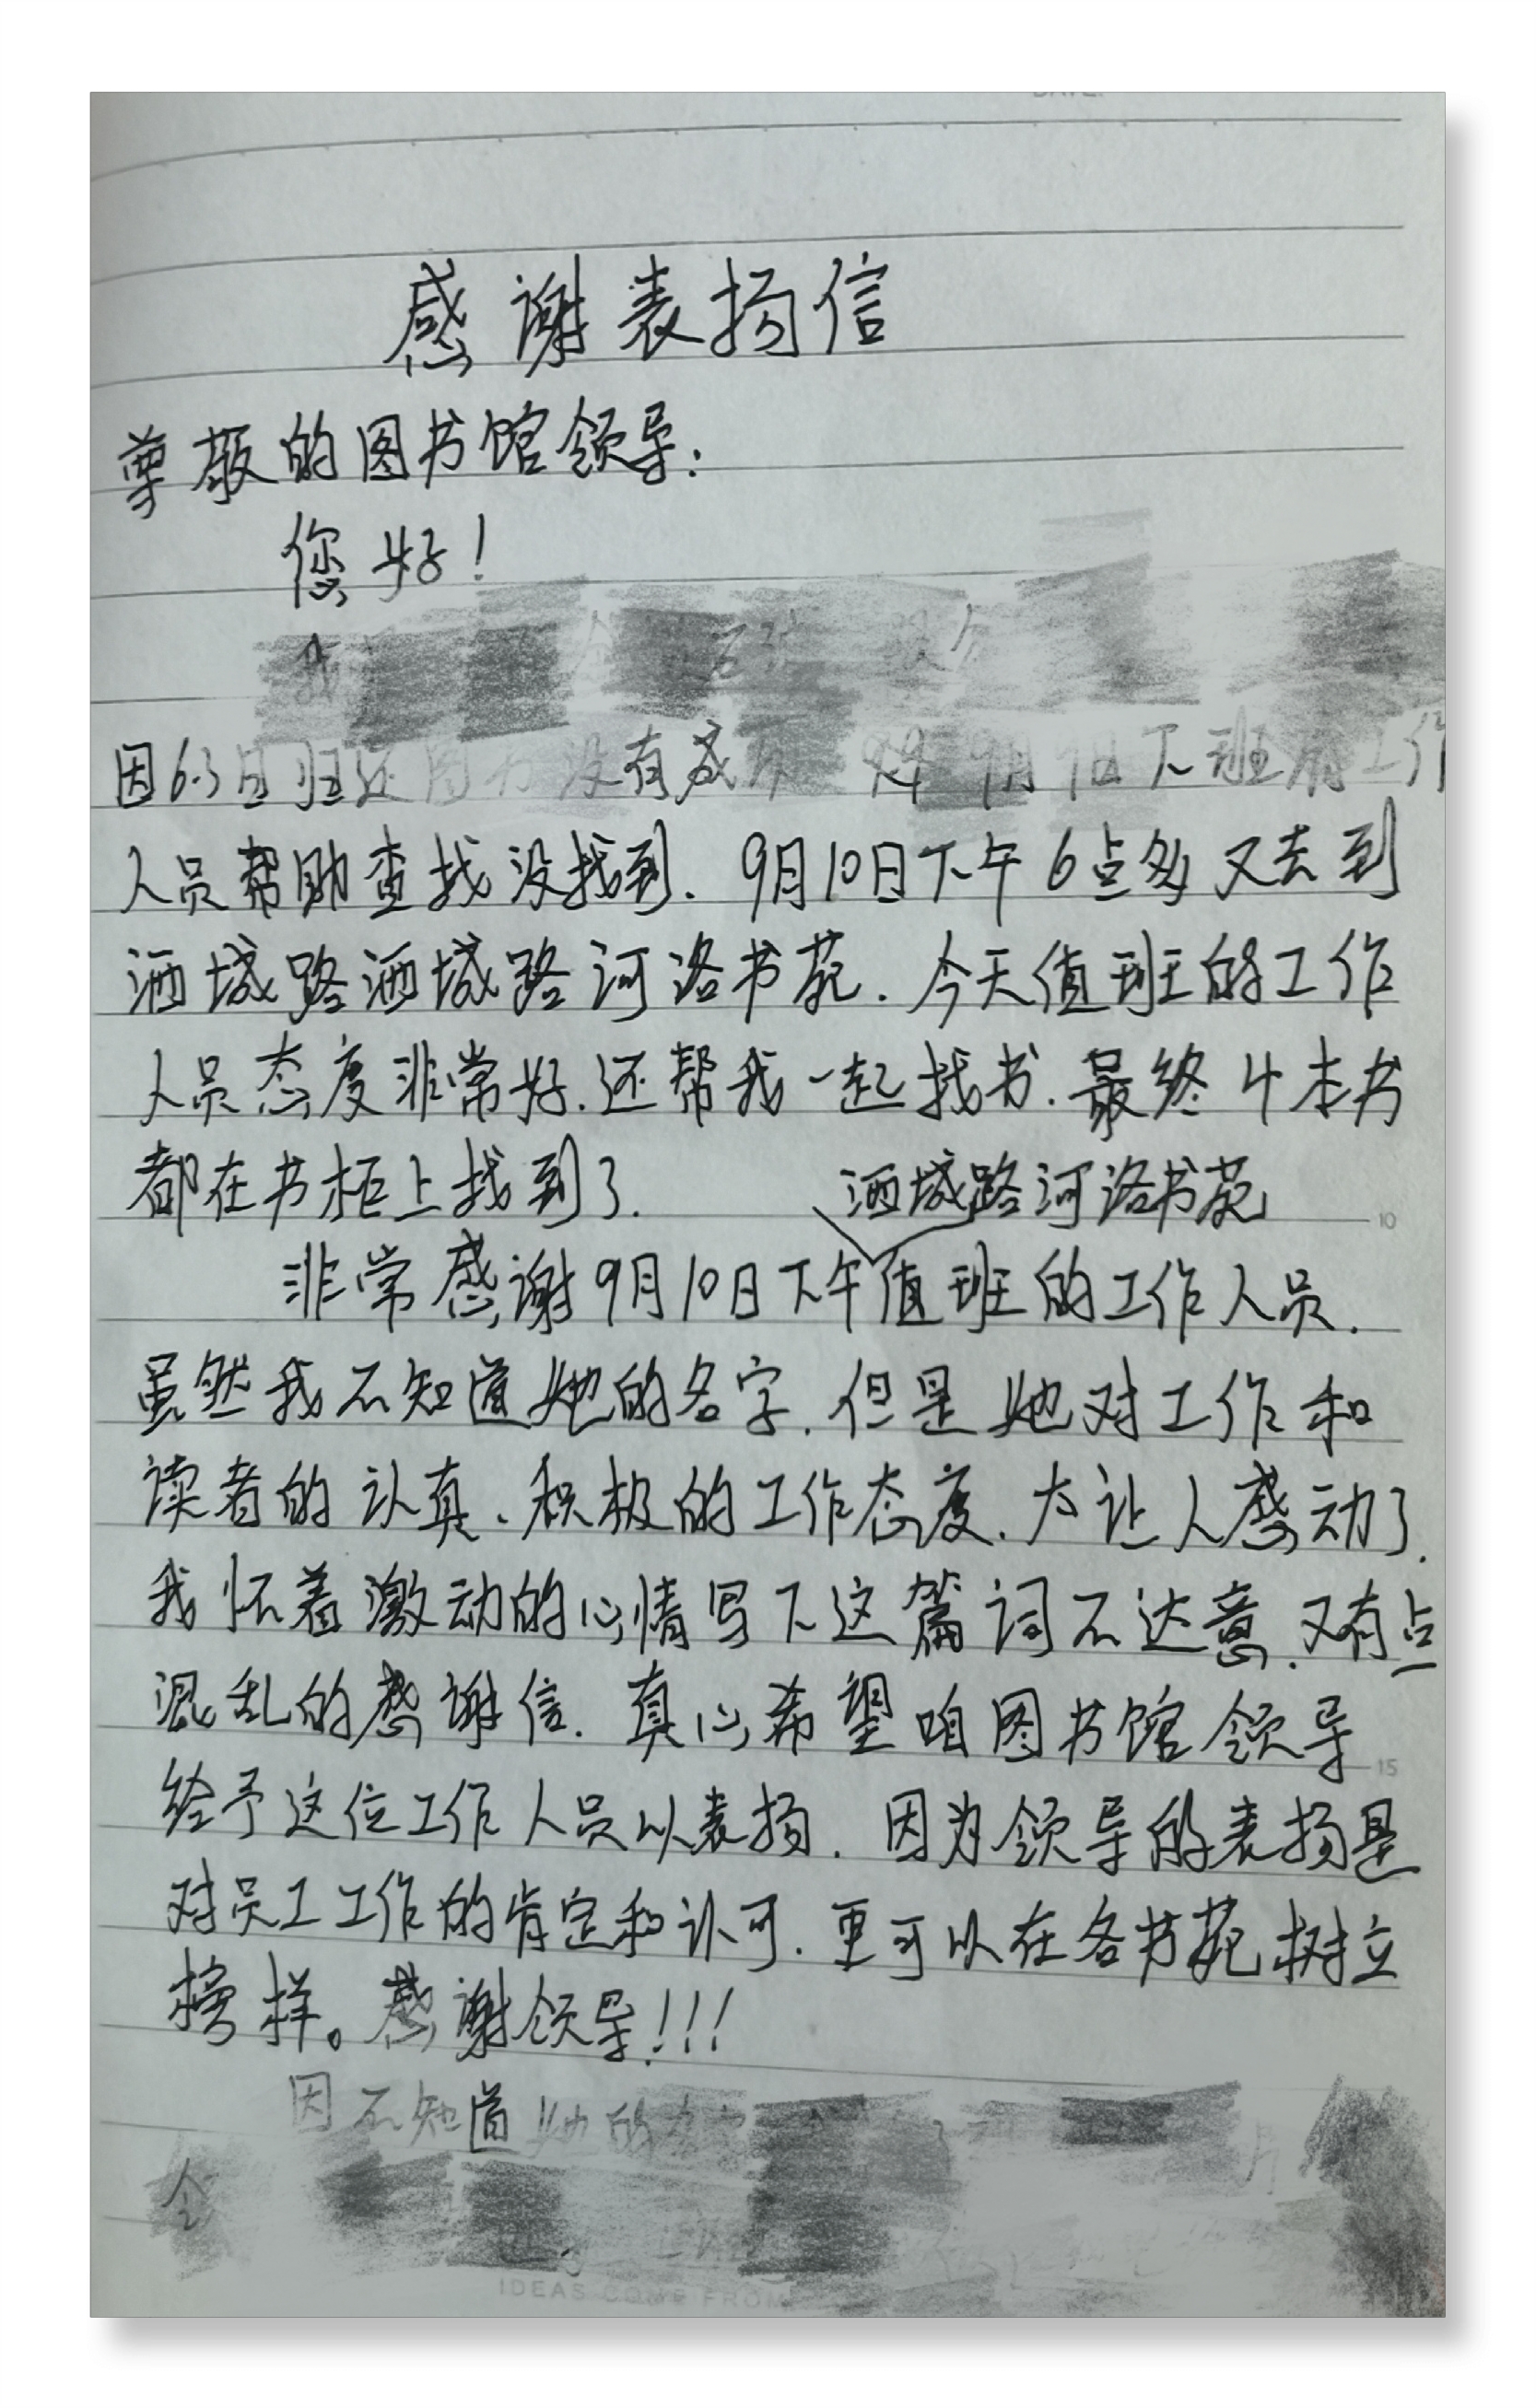 感谢表扬信
尊敬的图书馆领导:
您好!
我
因6.3日归还图书没有成 9月9日下班前工作
人员帮助查找没找到. 9月10日下午6点多又去到
洒城路洒城路河洛书苑. 今天值班的工作
人员态度非常好.还帮我一起找书.最终4本书
都在书柜上找到了.
洒城路河洛书苑
非常感谢9月10日下午值班的工作人员.
虽然我不知道她的名字.但是她对工作和
读者的认真、积极的工作态度.太让人感动了.
我怀着激动的心情写下这篇词不达意.又有点
混乱的感谢信. 真心希望咱图书馆领导
给予这位工作人员以表扬. 因为领导的表扬是
对员工工作的肯定和认可.更可以在各书苑树立
榜样。感谢领导!!!
因不知道她的名字
IDEAS COME FROM
10
15